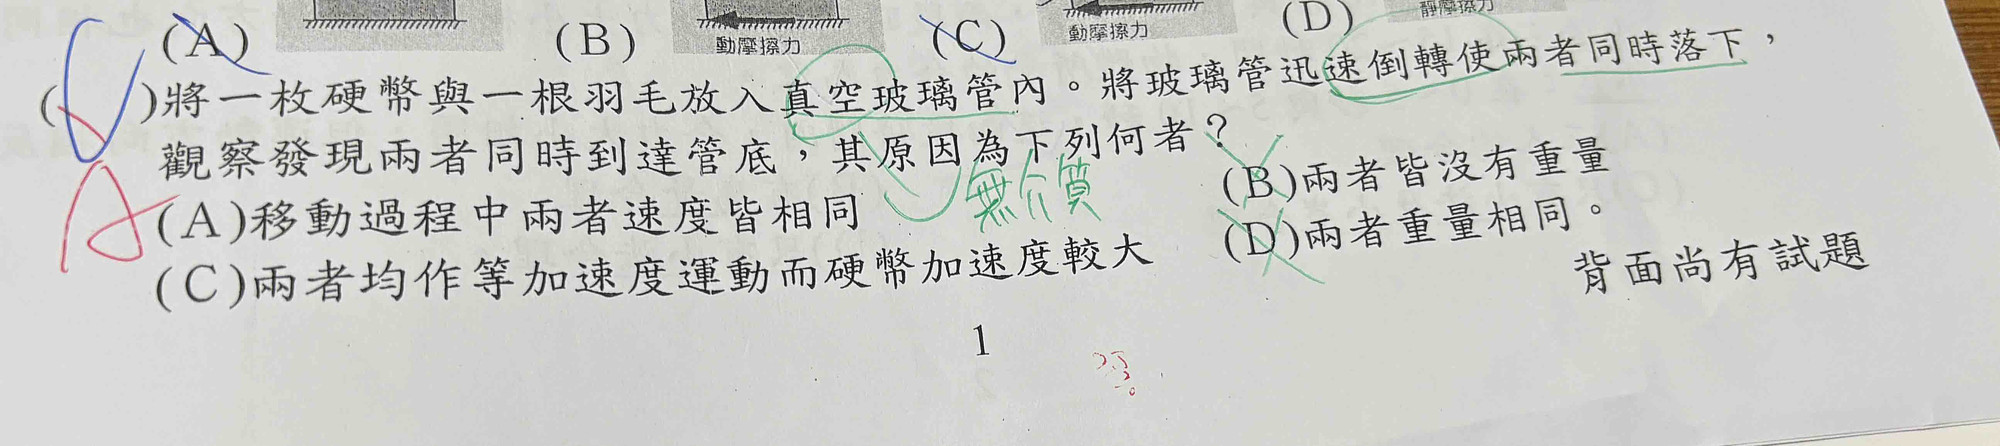 動摩擦力 動摩擦力 靜摩擦力
(A) (B) (C) (D)
( )將一枚硬幣與一根羽毛放入真空玻璃管內。將玻璃管迅速倒轉使兩者同時落下，
觀察發現兩者同時到達管底，其原因為下列何者？
無介質
A
(A)移動過程中兩者速度皆相同 (B)兩者皆沒有重量
(C)兩者均作等加速度運動而硬幣加速度較大 (D)兩者重量相同。
背面尚有試題
1